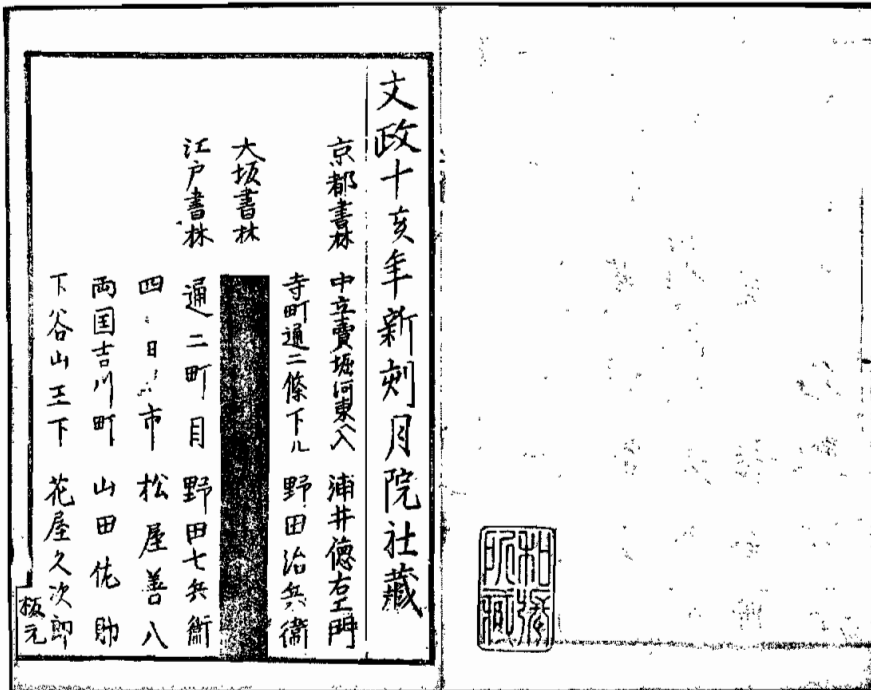 文政十亥年新刻月院社藏
京都書林 中立賣堀河東入 浦井德右エ門
寺町通二條下ル 野田治兵衞
大坂書林
江戸書林 通二町目 野田七兵衞
四日市 松屋善八
両国吉川町 山田佐助
下谷山王下 花屋久次郎
板元